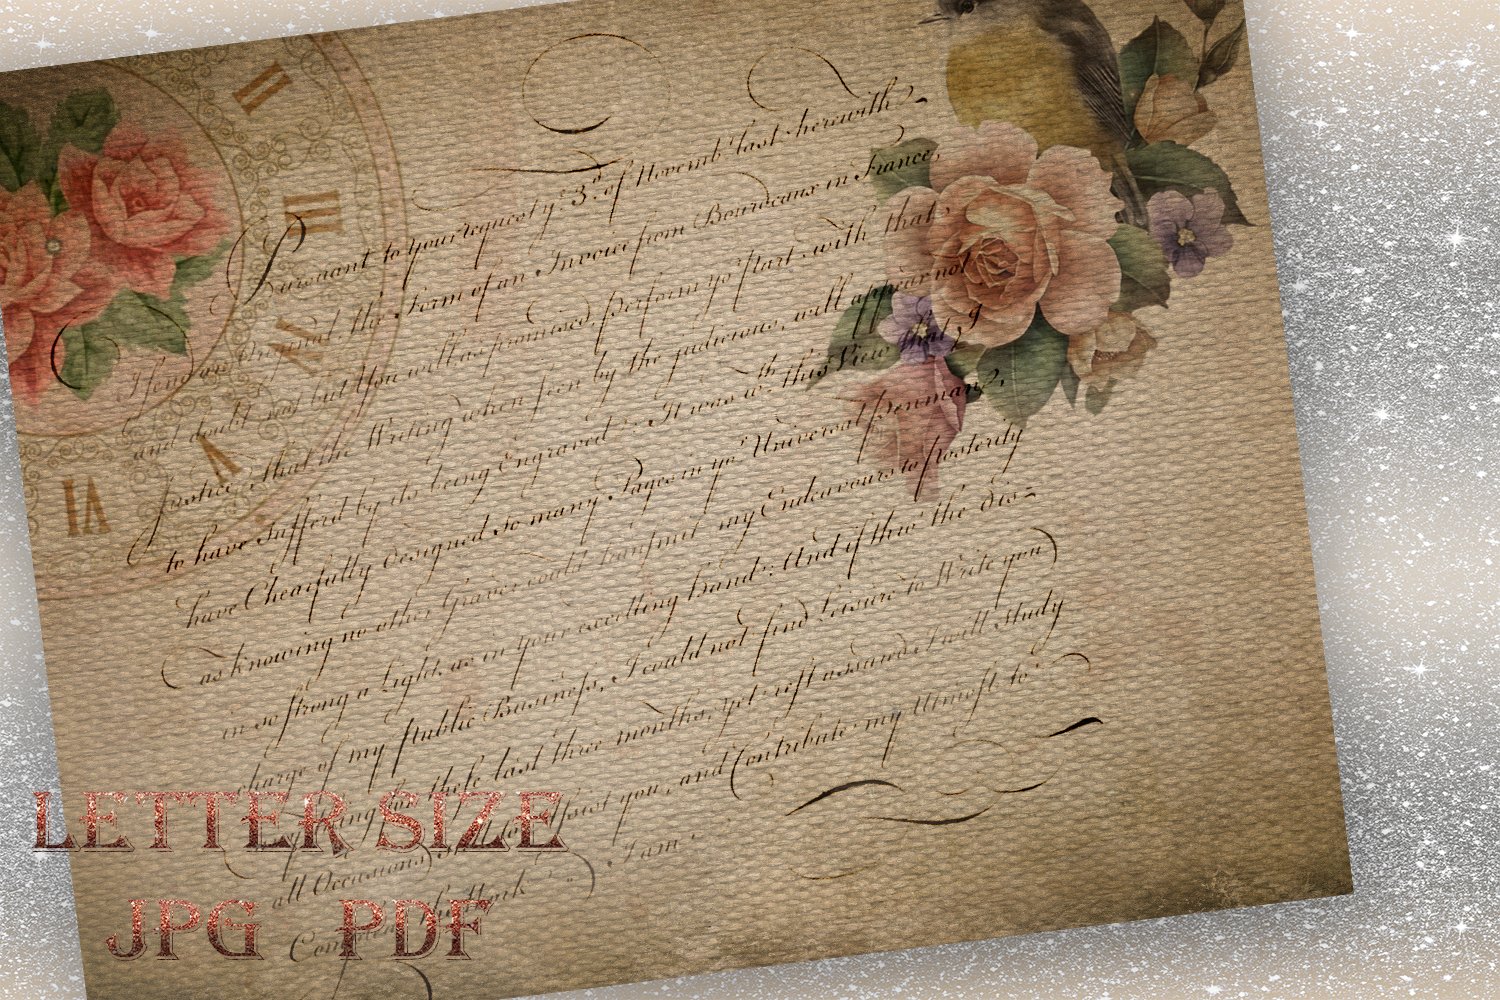 II
III
IV
V
VI
Pursuant to your request yᵉ 3.ᵈ of Novemb.ʳ last herewith
I send an Original, the Form of an Invoice from Bourdeaux in France,
and doubt not but You will as promised, perform yᵉ part with that
Justice, that the Writing when seen by the judicious, will appear not
to have suffer'd by its being Engraved. It was wᵗʰ this View that I
have Chearfully designed so many Pages in yᵉ Universal Penman,
as knowing no other Graver could transmit my Endeavours to posterity
in so strong a Light, as in your excelling hand: And if thro' the dis=
charge of my publick Business, I could not find Leisure to Write you
any thing for these last three months, yet rest assured I will study
all Occasions still to assist you, and Contribute my Utmost to
Compleat the Work I am
LETTER SIZE
JPG PDF